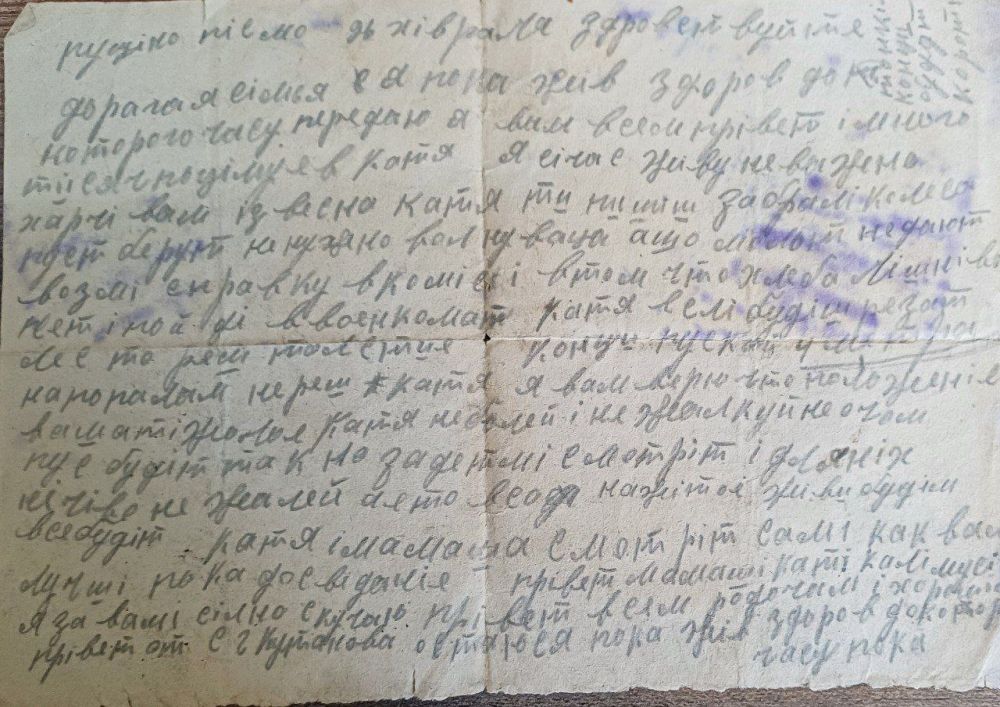 пущіно пісмо 3ь хіврала здровствуйтя
дорагая сімья с я пока жив здоров до ка
которого часу передаю я вам всем прівет і много
тисяч поцілуев катя я січас живу неважено
харчі вам ізвесна катя ти пишиш забралі колеса
пуст берут ненужно волнуваца ашо молот недают
возмі справку вкомісії втом что хлеба лішнів
нет іпойді ввоенкомат катя еслі будіш резат
лес то реж толстие концы пускай
напополам нереш катя я вам верю что положеніе
ваша тіжолое катя неболей і нежалкуй неочом
пус будіт так но задетмі смотріт і для ніх
нічіво не жалей а ето всо нажітоя живи будім
всебудіт катя і мамаша смотріт самі как вам
лучші пока досведанія прівет мамаші каті калі мусі
я за вамі сілно скучаю прівет всем родочам і хорошім
прівет от С Г Кутакова остаюся пока жив здоров до котор
часу пока
концы
будут
коротк